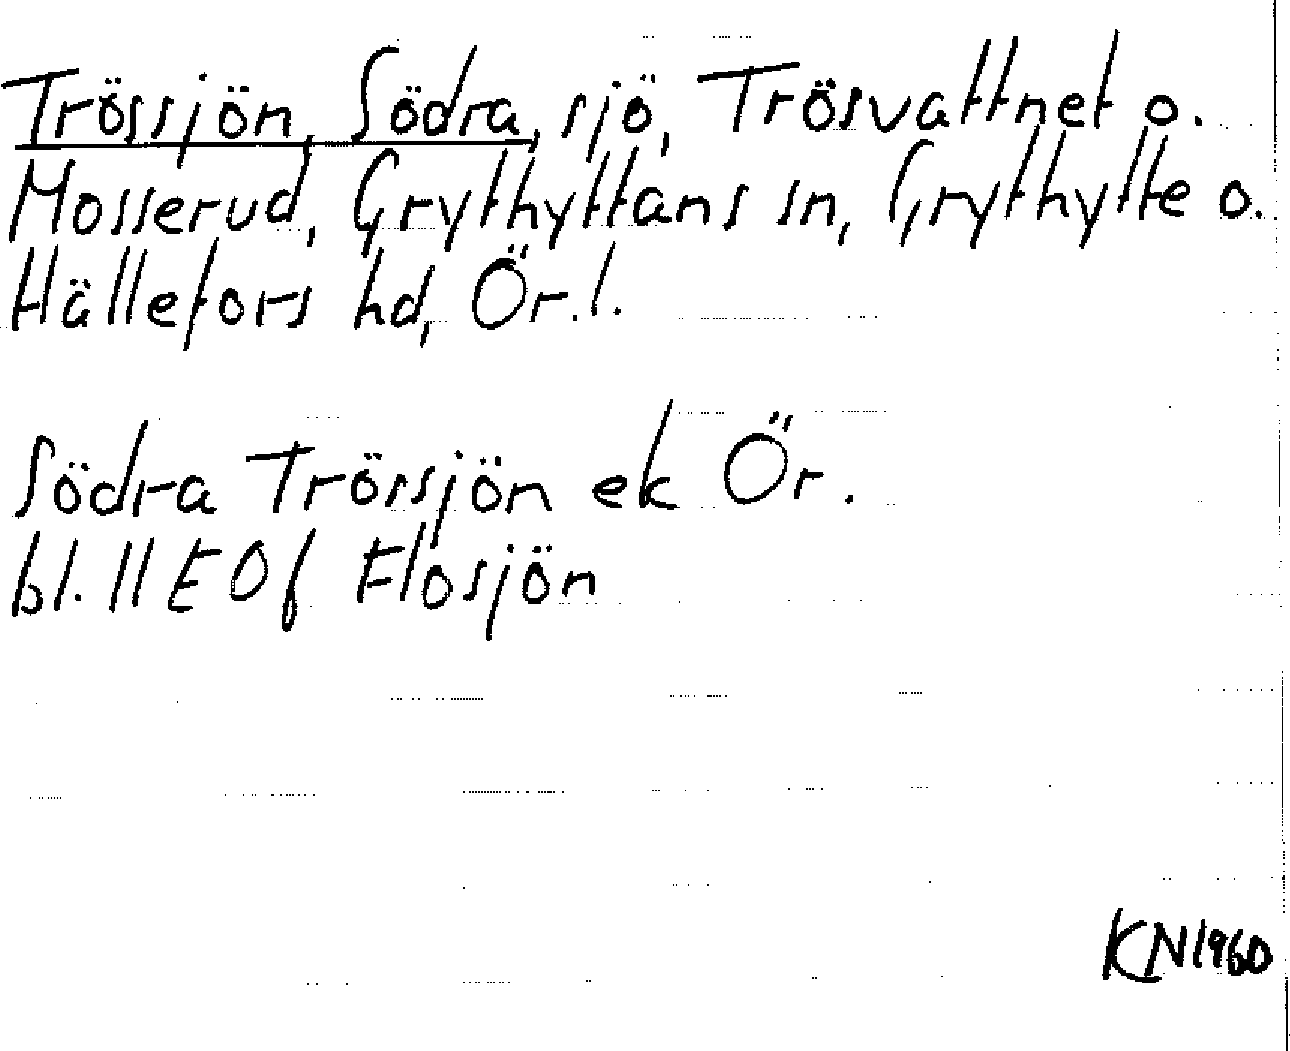 Trössjön, Södra, sjö, Trösvattnet o.
Mosserud, Grythyttans sn, Grythytte o.
Hällefors hd, Ör. l.
Södra Trörsjön ek Ör.
bl. 11 E 0f Flosjön
KN 1960